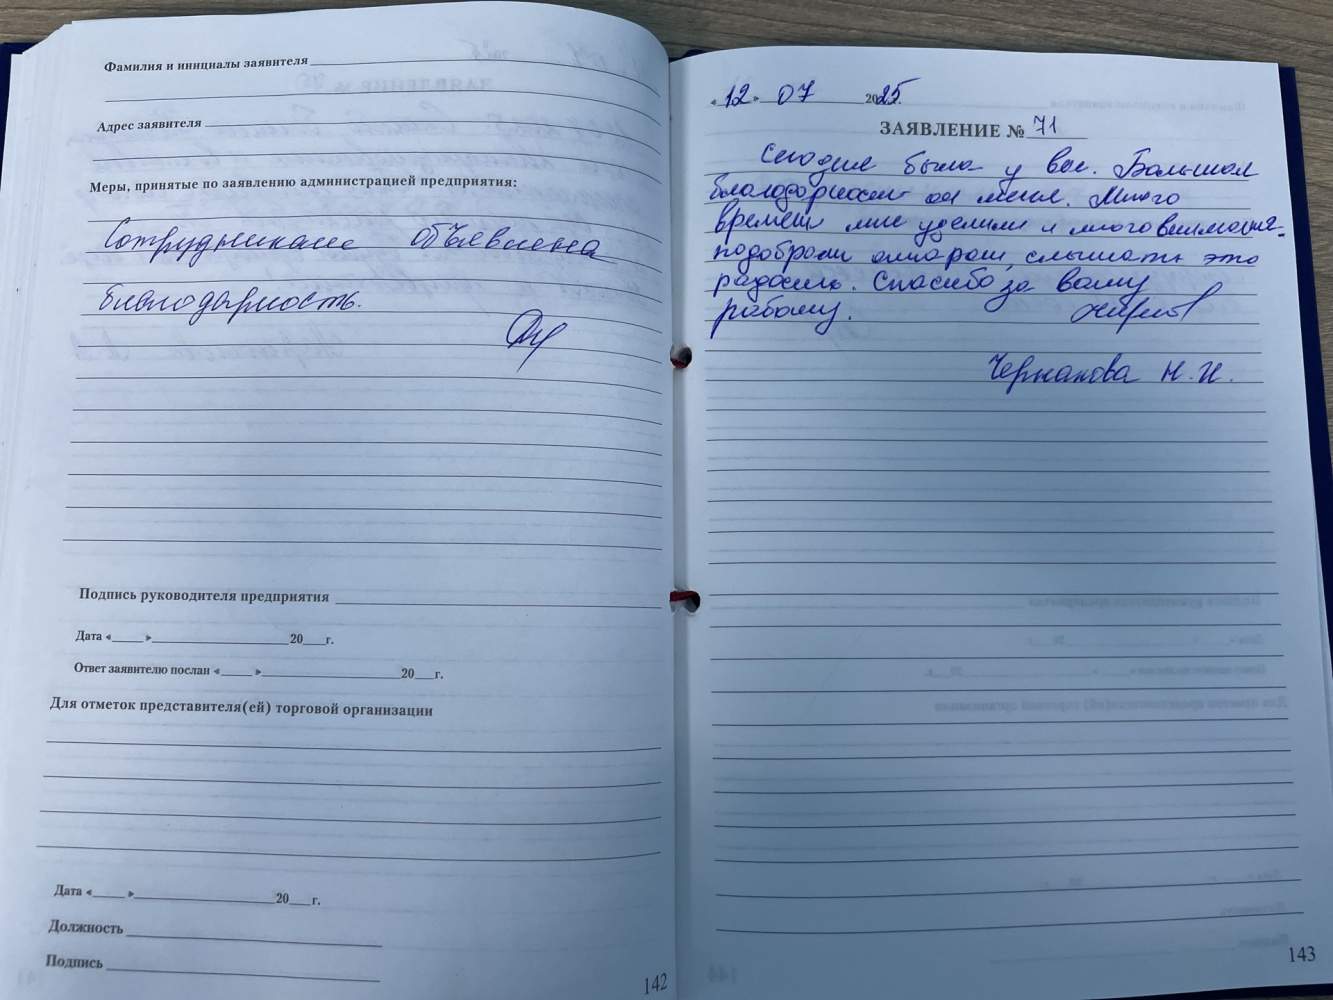 Фамилия и инициалы заявителя
Адрес заявителя
Меры, принятые по заявлению администрацией предприятия:
Сотрудникам объявлена
благодарность.
Подпись руководителя предприятия
Дата «____» ____________ 20___г.
Ответ заявителю послан «____» ____________ 20___г.
Для отметок представителя(ей) торговой организации
Дата «____» ____________ 20___г.
Должность
Подпись
142
«12» 07 2025.
ЗАЯВЛЕНИЕ № 71
Сегодня была у вас. Большая
благодарность от меня. Много
времени мне уделили и много внимания.
подобрали аппарат, слышать это
радость. Спасибо за вашу
работу.
Н. И.
143